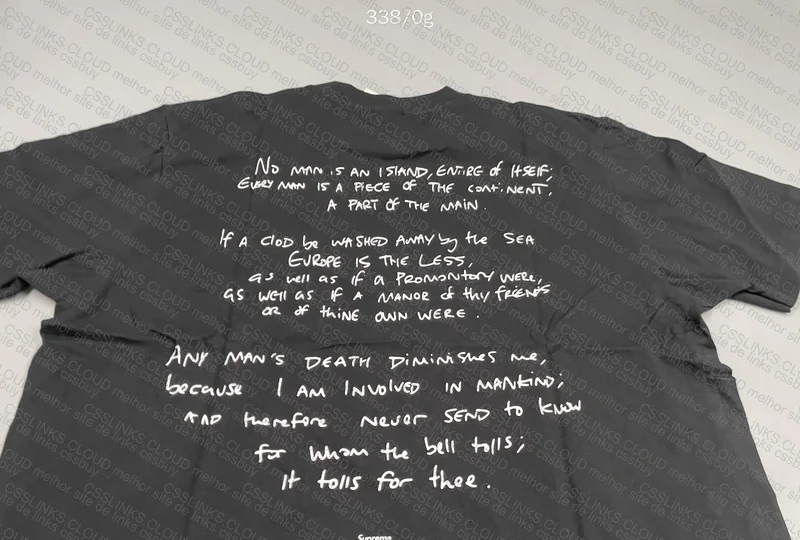 338/0g
No MAN IS AN ISLAND, ENTIRE of ITSELF;
EVERY MAN IS A PIECE OF THE CONTINENT,
A PART OF THE MAIN.
If A Clod be WASHED AWAY by the SEA
EUROPE IS THE LESS,
as well as if a PROMONTORY WERE,
as well as IF A MANOR of thy FRIENDS
OR of thINE OWN WERE.
ANY MAN'S DEATH DIMINISHES me,
because I AM INVOLVED IN MANKIND;
AND therefore NEVER SEND to KNOW
for whom the bell tolls;
It tolls for thee.
Supreme
CSSLINKS.CLOUD melhor site de links cssbuy